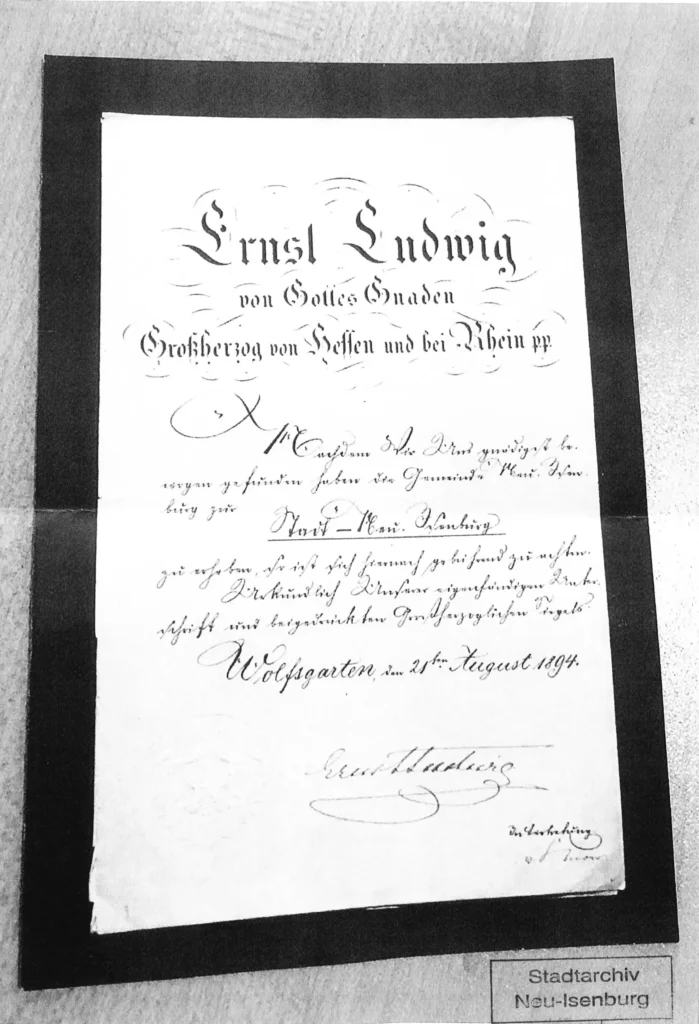 Ernst Ludwig
von Gottes Gnaden
Großherzog von Hessen und bei Rhein pp
Nachdem Wir Uns gnädigst be-
wogen gefunden haben die Gemeinde Neu-Isen-
burg zur
Stadt – Neu-Isenburg
zu erheben, so ist sich hiernach gebührend zu achten.
Urkundlich Unserer eigenhändigen Unter-
schrift und beigedrückten Großherzoglichen Siegels.
Wolfsgarten, den 21ten August 1894.
Ernst Ludwig
In Vertretung
Stadtarchiv
Neu-Isenburg